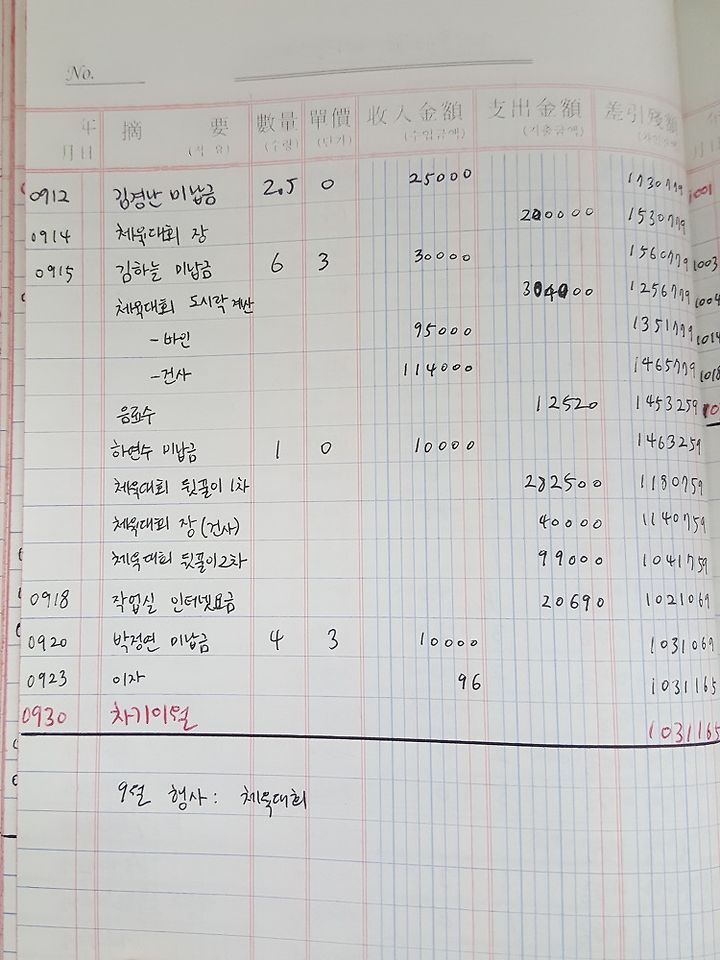 No.
年 月日 摘 要 (적 요) 數量 (수량) 單價 (단가) 收入金額 (수입금액) 支出金額 (지출금액) 差引残額
0912 김경난 미납금 2.5 0 25000 1730779
0914 체육대회 장 200000 1530779
0915 김하늘 미납금 6 3 30000 1560779
체육대회 도시락 계산 304000 1256779
-바인 95000 1351779
-건사 114000 1465779
음료수 12520 1453259
하연수 미납금 1 0 10000 1463259
체육대회 뒷풀이 1차 282500 1180759
체육대회 장(건사) 40000 1140759
체육대회 뒷풀이2차 99000 1041759
0918 작업실 인터넷요금 20690 1021069
0920 박정연 미납금 4 3 10000 1031069
0923 이자 96 1031165
0930 차기이월 1031165
9월 행사: 체육대회
1001
1003
1004
1014
1018